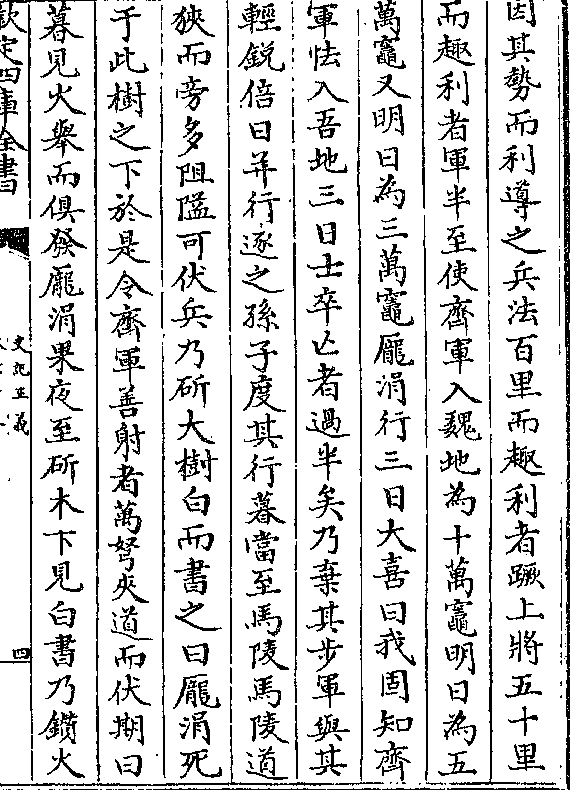 因其勢而利導之兵法百里而趣利者蹶上將五十里
而趣利者軍半至使齊軍入魏地為十萬竈明日為五
萬竈又明日為三萬竈龐涓行三日大喜曰我固知齊
軍怯入吾地三日士卒亡者過半矣乃棄其步軍與其
輕銳倍日并行逐之孫子度其行暮當至馬陵馬陵道
狹而旁多阻隘可伏兵乃斫大樹白而書之曰龐涓死
于此樹之下於是令齊軍善射者萬弩夾道而伏期曰
暮見火舉而俱發龐涓果夜至斫木下見白書乃鑽火
欽定四庫全書
史記正義
四